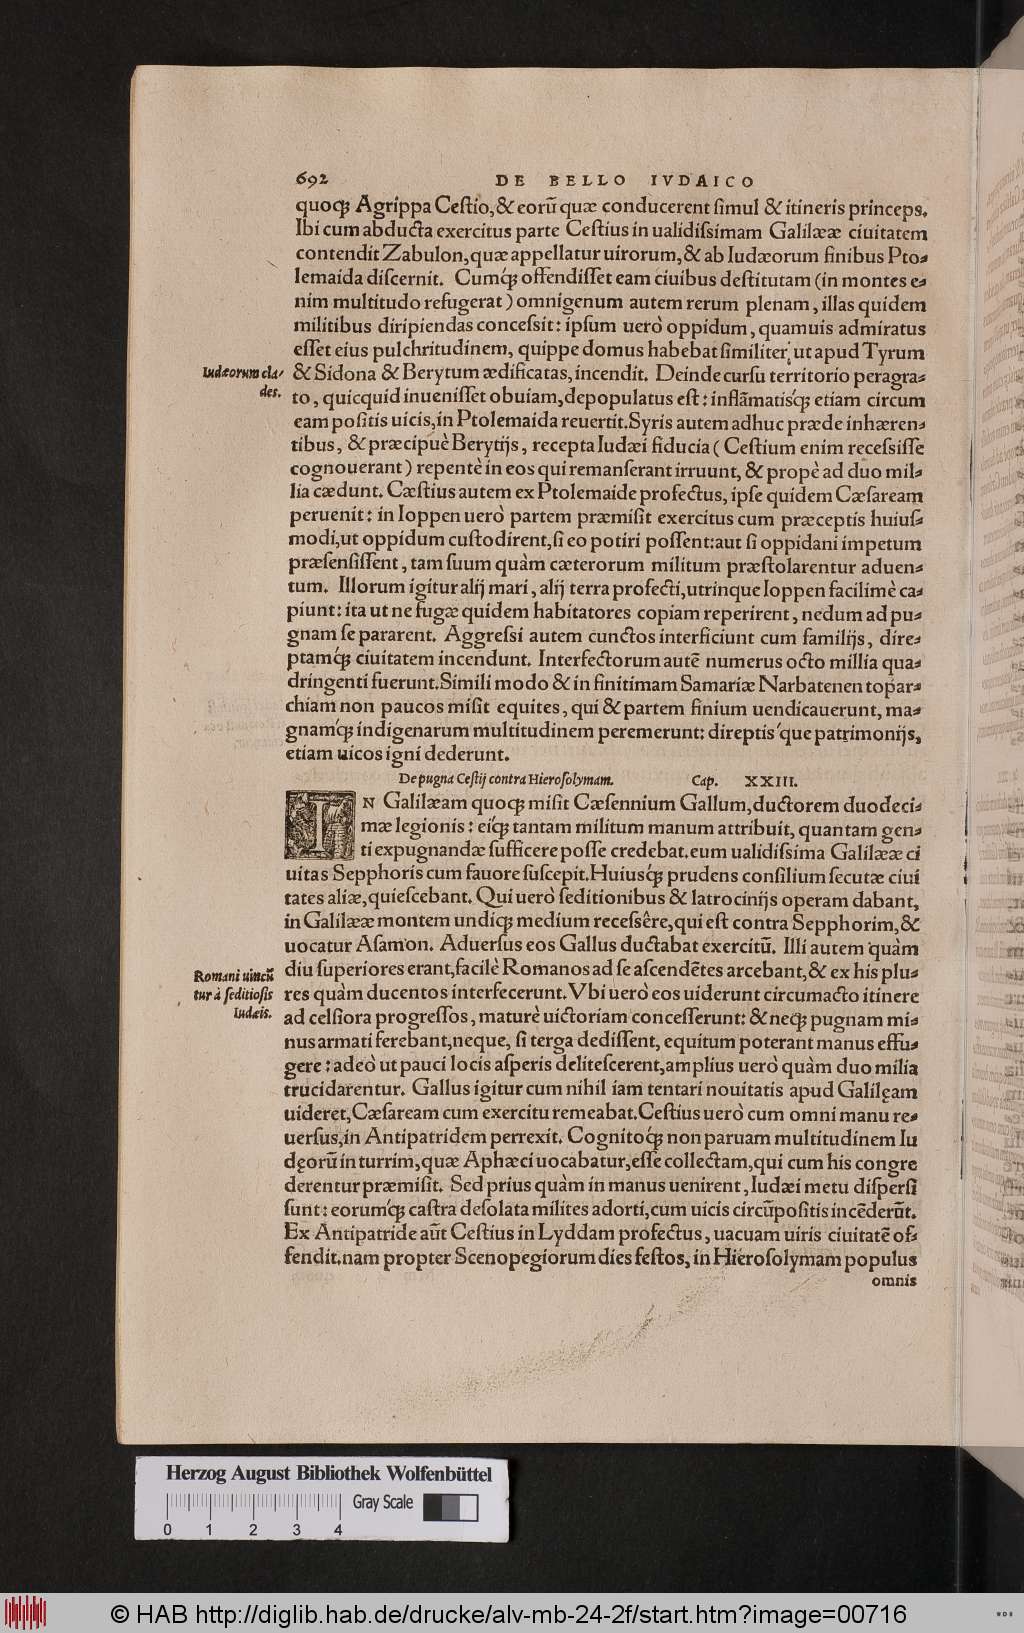 692 DE BELLO IVDAICO
quoq; Agrippa Ceſtio, & eorũ quæ conducerent ſimul & itineris princeps.
Ibi cum abducta exercitus parte Ceſtius in ualidiſsimam Galilææ ciuitatem
contendit Zabulon, quæ appellatur uirorum, & ab Iudæorum finibus Pto-
lemaida diſcernit. Cumq́; offendiſſet eam ciuibus deſtitutam (in montes e-
nim multitudo refugerat) omnigenum autem rerum plenam, illas quidem
militibus diripiendas conceſsit: ipſum uerò oppidum, quamuis admiratus
eſſet eius pulchritudinem, quippe domus habebat ſimiliter, ut apud Tyrum
Iudæorum cla-
des.
& Sidona & Berytum ædificatas, incendit. Deinde curſu territorio peragra-
to, quicquid inueniſſet obuiam, depopulatus eſt: inflãmatisq́; etiam circum
eam poſitis uicis, in Ptolemaida reuertit. Syris autem adhuc prædæ inhæren-
tibus, & præcipuè Berytijs, recepta Iudæi fiducia (Ceſtium enim receſsiſſe
cognouerant) repentè in eos qui remanſerant irruunt, & propè ad duo mil-
lia cædunt. Cæſtius autem ex Ptolemaide profectus, ipſe quidem Cæſaream
peruenit: in Ioppen uerò partem præmiſit exercitus cum præceptis huiuſ-
modi, ut oppidum cuſtodirent, ſi eo potiri poſſent: aut ſi oppidani impetum
præſenſiſſent, tam ſuum quàm cæterorum militum præſtolarentur aduen-
tum. Illorum igitur alij mari, alij terra profecti, utrinque Ioppen facilimè ca-
piunt: ita ut ne fugæ quidem habitatores copiam reperirent, nedum ad pu-
gnam ſe pararent. Aggreſsi autem cunctos interficiunt cum familijs, dire-
ptamq́; ciuitatem incendunt. Interfectorum autẽ numerus octo millia qua-
dringenti fuerunt. Simili modo & in finitimam Samariæ Narbatenen topar-
chiam non paucos miſit equites, qui & partem finium uendicauerunt, ma-
gnamq́; indigenarum multitudinem peremerunt: direptiśque patrimonijs,
etiam uicos igni dederunt.
De pugna Ceſtij contra Hieroſolymam. Cap. XXIII.
IN Galilæam quoq; miſit Cæſennium Gallum, ductorem duodeci-
mæ legionis: eiq́; tantam militum manum attribuit, quantam gen-
ti expugnandæ ſufficere poſſe credebat. eum ualidiſsima Galilææ ci
uitas Sepphoris cum fauore ſuſcepit. Huiusq́; prudens conſilium ſecutæ ciui
tates aliæ, quieſcebant. Qui uerò ſeditionibus & latrocinijs operam dabant,
in Galilææ montem undiq; medium receſsêre, qui eſt contra Sepphorim, &
uocatur Aſamon. Aduerſus eos Gallus ductabat exercitũ. Illi autem quàm
Romani uincũ
tur à ſeditioſis
Iudæis.
diu ſuperiores erant, facilè Romanos ad ſe aſcendẽtes arcebant, & ex his plu-
res quàm ducentos interfecerunt. Vbi uerò eos uiderunt circumacto itinere
ad celſiora progreſſos, maturè uictoriam conceſſerunt: & neq; pugnam mi-
nus armati ferebant, neque, ſi terga dediſſent, equitum poterant manus effu-
gere: adeò ut pauci locis aſperis deliteſcerent, amplius uerò quàm duo milia
trucidarentur. Gallus igitur cum nihil iam tentari nouitatis apud Galilęam
uideret, Cæſaream cum exercitu remeabat. Ceſtius uerò cum omni manu re-
uerſus, in Antipatridem perrexit. Cognitoq́; non paruam multitudinem Iu
dęorũ in turrim, quæ Aphæci uocabatur, eſſe collectam, qui cum his congre
derentur præmiſit. Sed prius quàm in manus uenirent, Iudæi metu diſperſi
ſunt: eorumq́; caſtra deſolata milites adorti, cum uicis circũpoſitis incẽderũt.
Ex Antipatride aũt Ceſtius in Lyddam profectus, uacuam uiris ciuitatẽ of-
fendit. nam propter Scenopegiorum dies feſtos, in Hieroſolymam populus
omnis
Herzog August Bibliothek Wolfenbüttel
Gray Scale
0 1 2 3 4
© HAB http://diglib.hab.de/drucke/alv-mb-24-2f/start.htm?image=00716